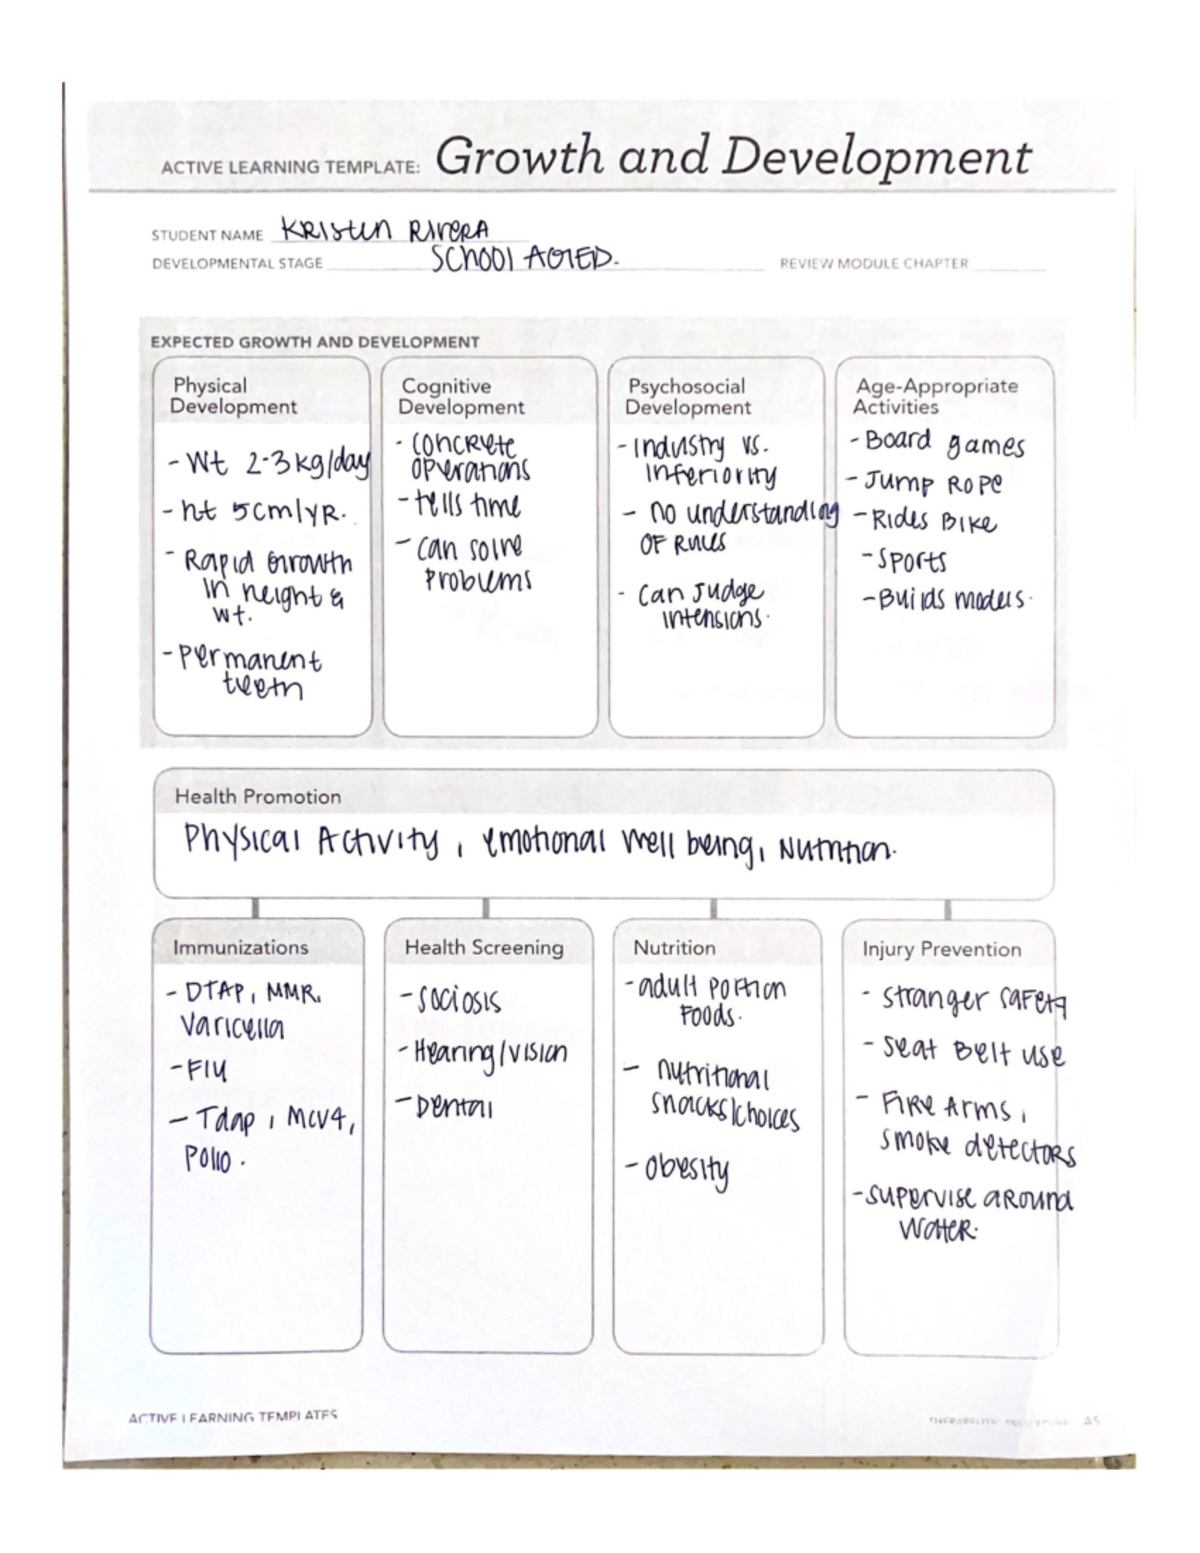 ACTIVE LEARNING TEMPLATE: Growth and Development
STUDENT NAME KRISTEN RIVERA
DEVELOPMENTAL STAGE SCHOOL AGED. REVIEW MODULE CHAPTER
EXPECTED GROWTH AND DEVELOPMENT
Physical
Development
- Wt 2-3kg/day
- ht 5cm/YR.
- Rapid Growth
in height &
wt.
- Permanent
teeth
Cognitive
Development
- concrete
operations
- tells time
- can solve
problems
Psychosocial
Development
- Industry vs.
inferiority
- no understanding
OF Rules
- Can Judge
intensions.
Age-Appropriate
Activities
- Board games
- Jump Rope
- Rides Bike
- Sports
- Builds models.
Health Promotion
Physical Activity, emotional well being, Nutrition.
Immunizations
- DTAP, MMR,
Varicella
- Flu
- Tdap, MCV4,
Polio.
Health Screening
- Sociosis
- Hearing/vision
- Dental
Nutrition
- adult portion
foods.
- nutritional
snacks/choices
- obesity
Injury Prevention
- stranger safety
- seat Belt use
- Fire Arms,
smoke detectors
- supervise around
water.
ACTIVE LEARNING TEMPLATES
THERAPEUTIC PROCEDURE A5